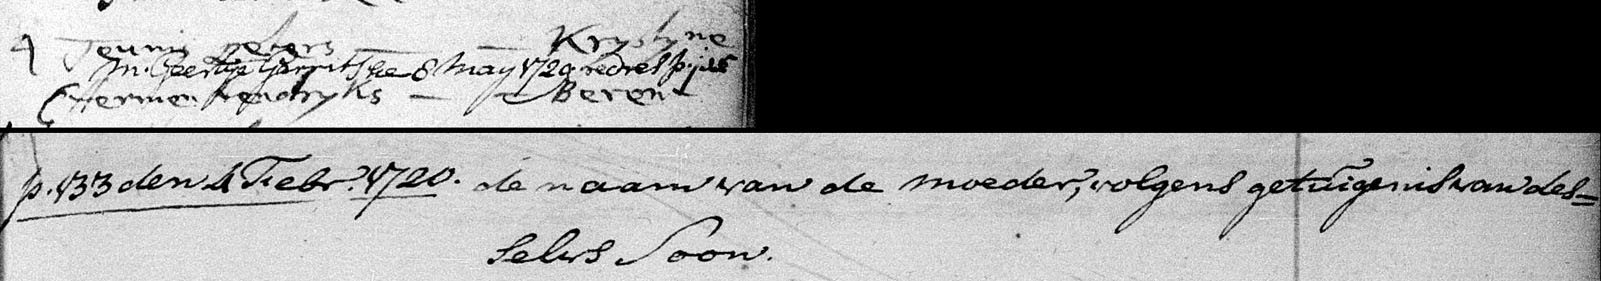 4 Teunis peters Krystyne
m. Geertje Gerrits See 8 May 1729
Hermen hendryks — — Berent
p. 133 den 4 Febr. 1720. de naam van de moeder, volgens getuigenis van des=
selvs Soon.